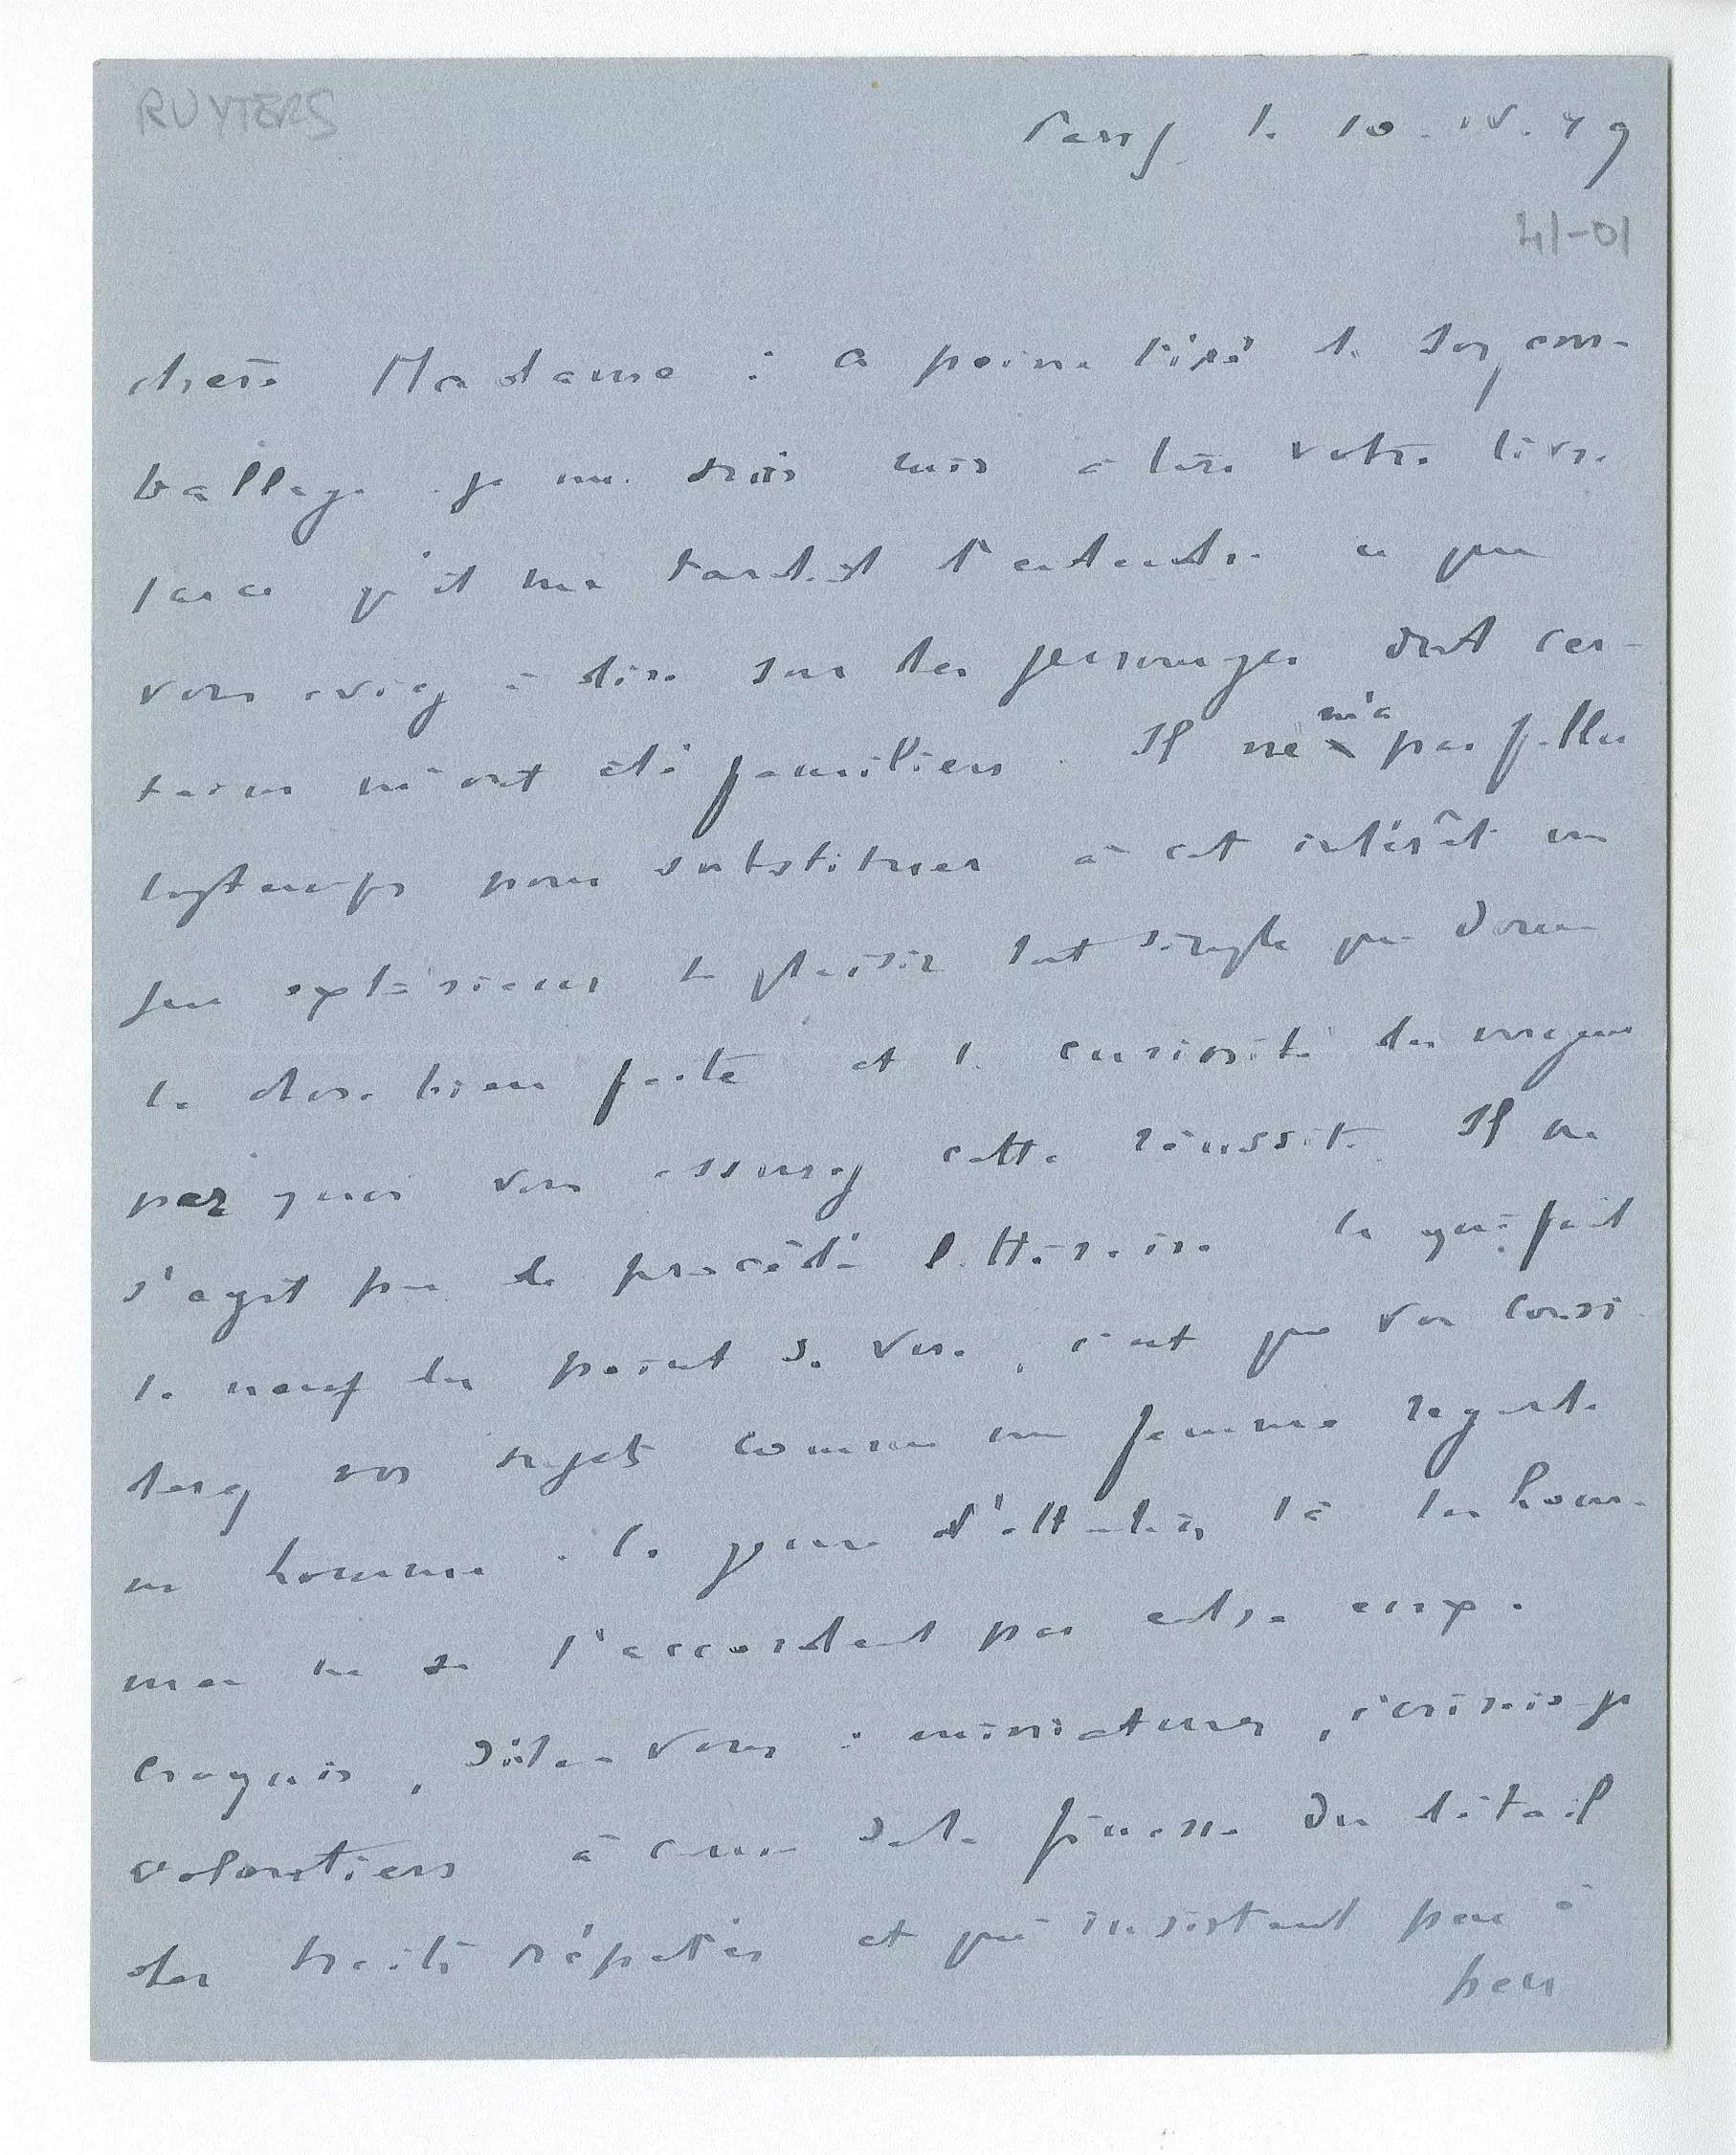 RUYTERS
Paris le 10.IV.49
41-01
chère Madame : a peine tiré de son em-
ballage je me suis mis à lire votre livre
tant qu'il me tardait d'entendre ce que
vous aviez à dire sur des personnages dont cer-
tains m'ont été familiers. Il ne m'a pas fallu
longtemps pour substituer à cet intérêt un
peu extérieur le plaisir tout simple que donne
la chose bien faite et la curiosité des moyens
par quoi vous assurez cette réussite. Il ne
s'agit pas de procédé littéraire. Ce qui fait
le neuf du point de vue, c'est que vous consi-
derez vos sujets comme une femme regarde
un homme. Ce genre d'attention là les hom-
mes ne se l'accordent pas entre eux.
Croquis, dites-vous : miniatures, écrirais-je
volontiers à cause de la finesse du détail
des traits répétés et qui insistent peu à
peu